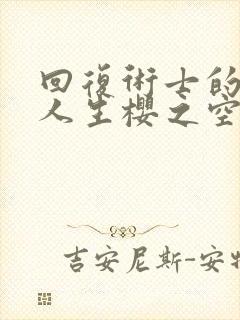 回復術士的
人生櫻之空
吉安尼斯-安特